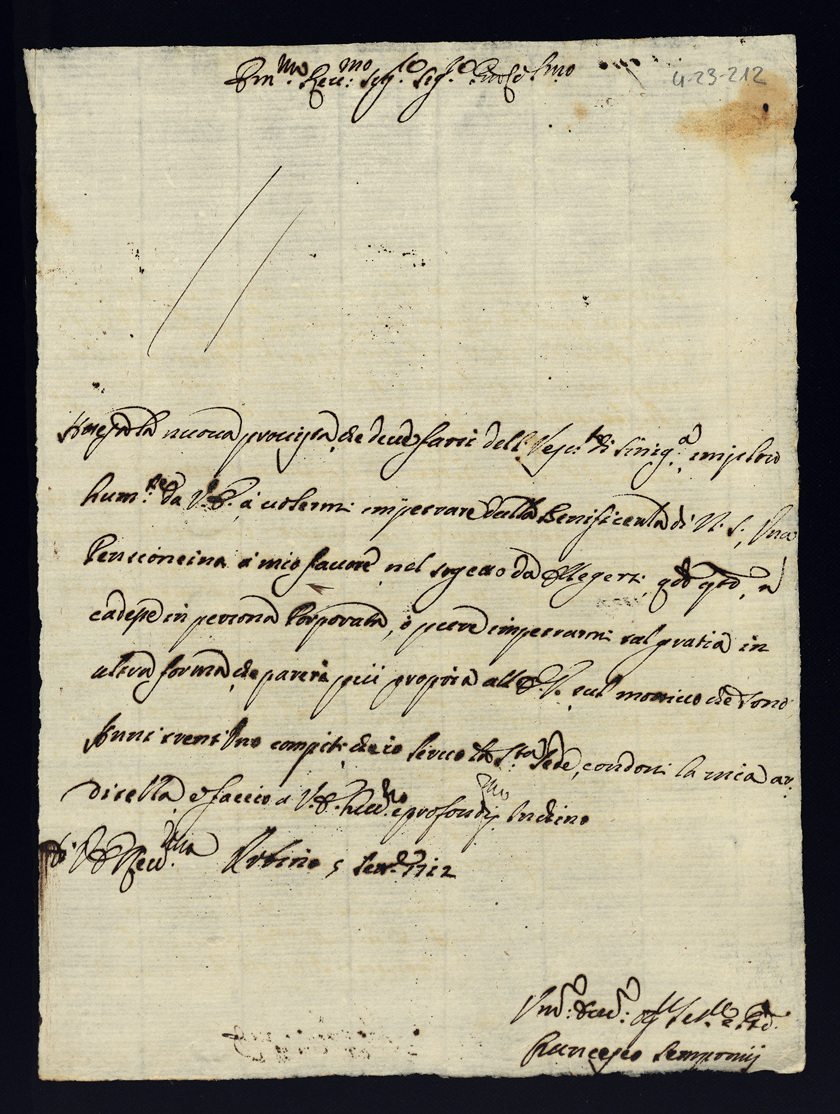 Em.mo Rev.mo Sig.re Sig.re
4-23-212
nuova provista, che deve farsi dell Vesc.to di Sinig.a imploro
hum.te da V. E. à volermi impetrare dalla Beneficenza di N. S. Una
Pensioncina à mio favore, nel sogetto da
cadesse in persona Porporata, ò pure impetrarmi tal gratia in
altra forma che parerà più propria all' E. V. sul motivo che sono
Anni vent'Uno compiti che io servo la S.ta Sede, condoni la mia ar
ditezza, e faccio à V. E. Rev.ma profond.mo Inchino
di V. E. Rev.ma Urbino 5 1712
Um.o
Francesco Semproniij